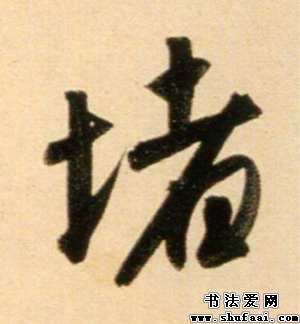 堵
书法爱网
www.shufaai.com